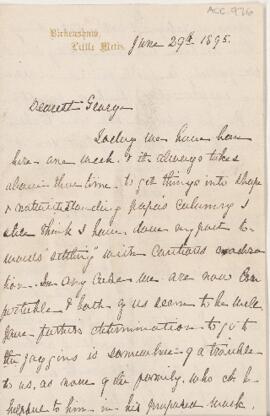 ACC. 976
Bickenshaw,
Little Metis.
June 29th 1895.
Dearest George
Today we have been
here one week. & it always takes
about this time to get things into shape
& notwithstanding papa's calumny I
still think I have done my part to-
wards "settling" with
In any case we are now com
fortable & both of us seem to be well
Your further determination to go to
the is somewhat of a trouble
to us, as none of the family, who can be
helpful to him in his proposed work